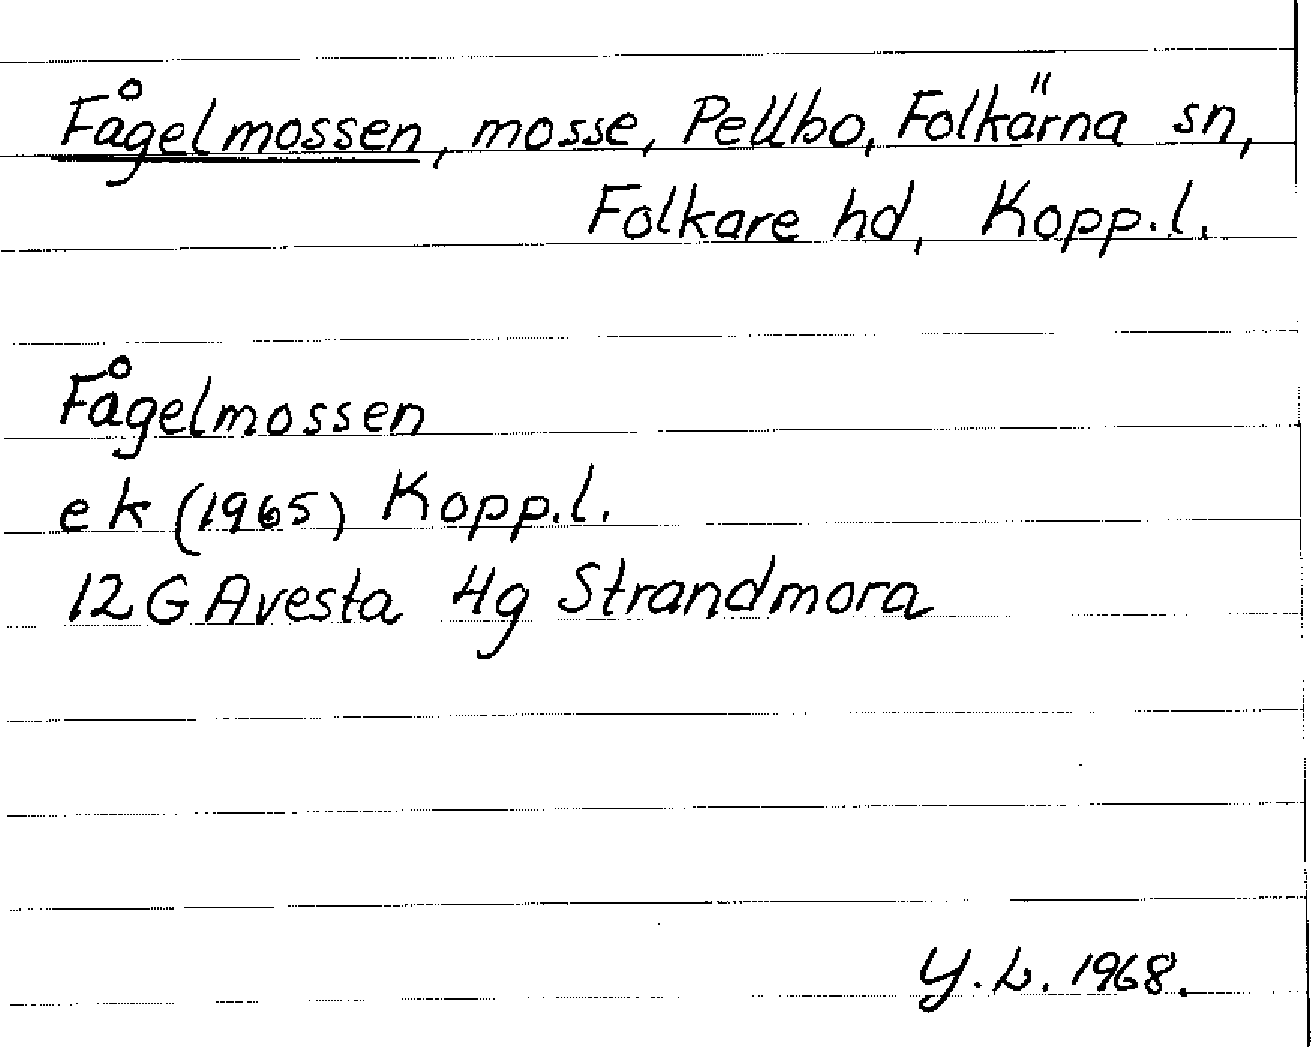 Fågelmossen, mosse, Pellbo, Folkärna sn,
Folkare hd, Kopp.l.
Fågelmossen
ek (1965) Kopp.l.
12G Avesta 4g Strandmora
Y.L. 1968.